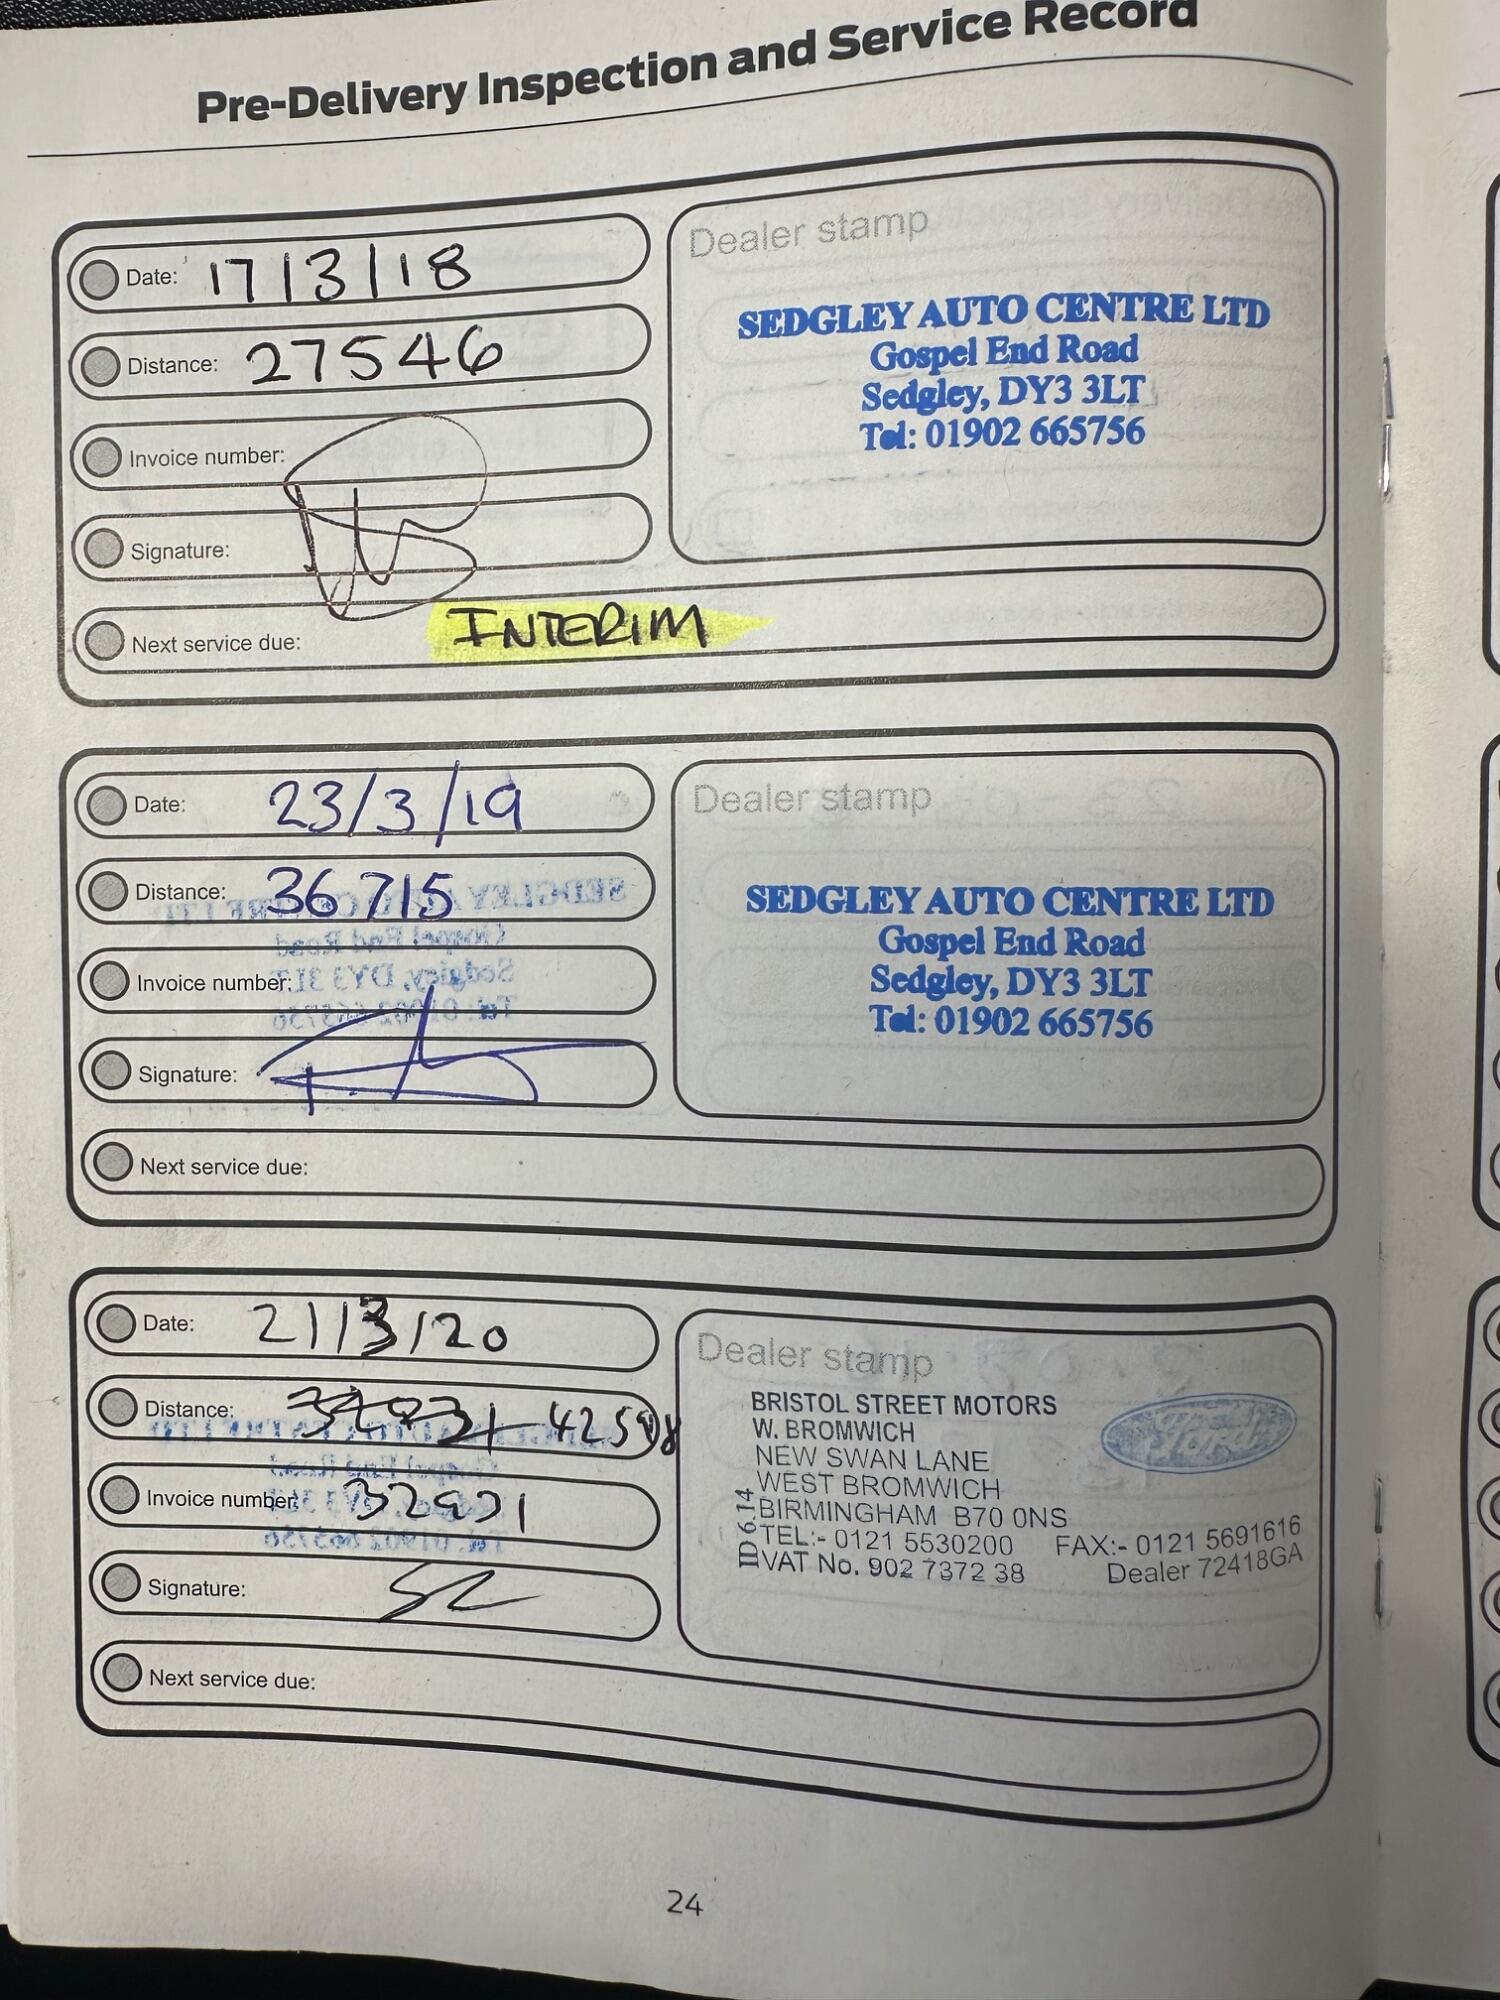 Pre-Delivery Inspection and Service Record
Date: 17/3/18
Distance: 27546
Invoice number:
Signature:
Next service due: INTERIM
Dealer stamp
SEDGLEY AUTO CENTRE LTD
Gospel End Road
Sedgley, DY3 3LT
Tel: 01902 665756
Date: 23/3/19
Distance: 36715
Invoice number:
Signature:
Next service due:
Dealer stamp
SEDGLEY AUTO CENTRE LTD
Gospel End Road
Sedgley, DY3 3LT
Tel: 01902 665756
Date: 21/3/20
Distance:
Invoice number: 32931
Signature:
Next service due:
Dealer stamp
BRISTOL STREET MOTORS
W. BROMWICH
NEW SWAN LANE
WEST BROMWICH
BIRMINGHAM B70 0NS
TEL:- 0121 5530200 FAX:- 0121 5691616
VAT No. 902 7372 38 Dealer 72418GA
ID 6.14
Ford
24